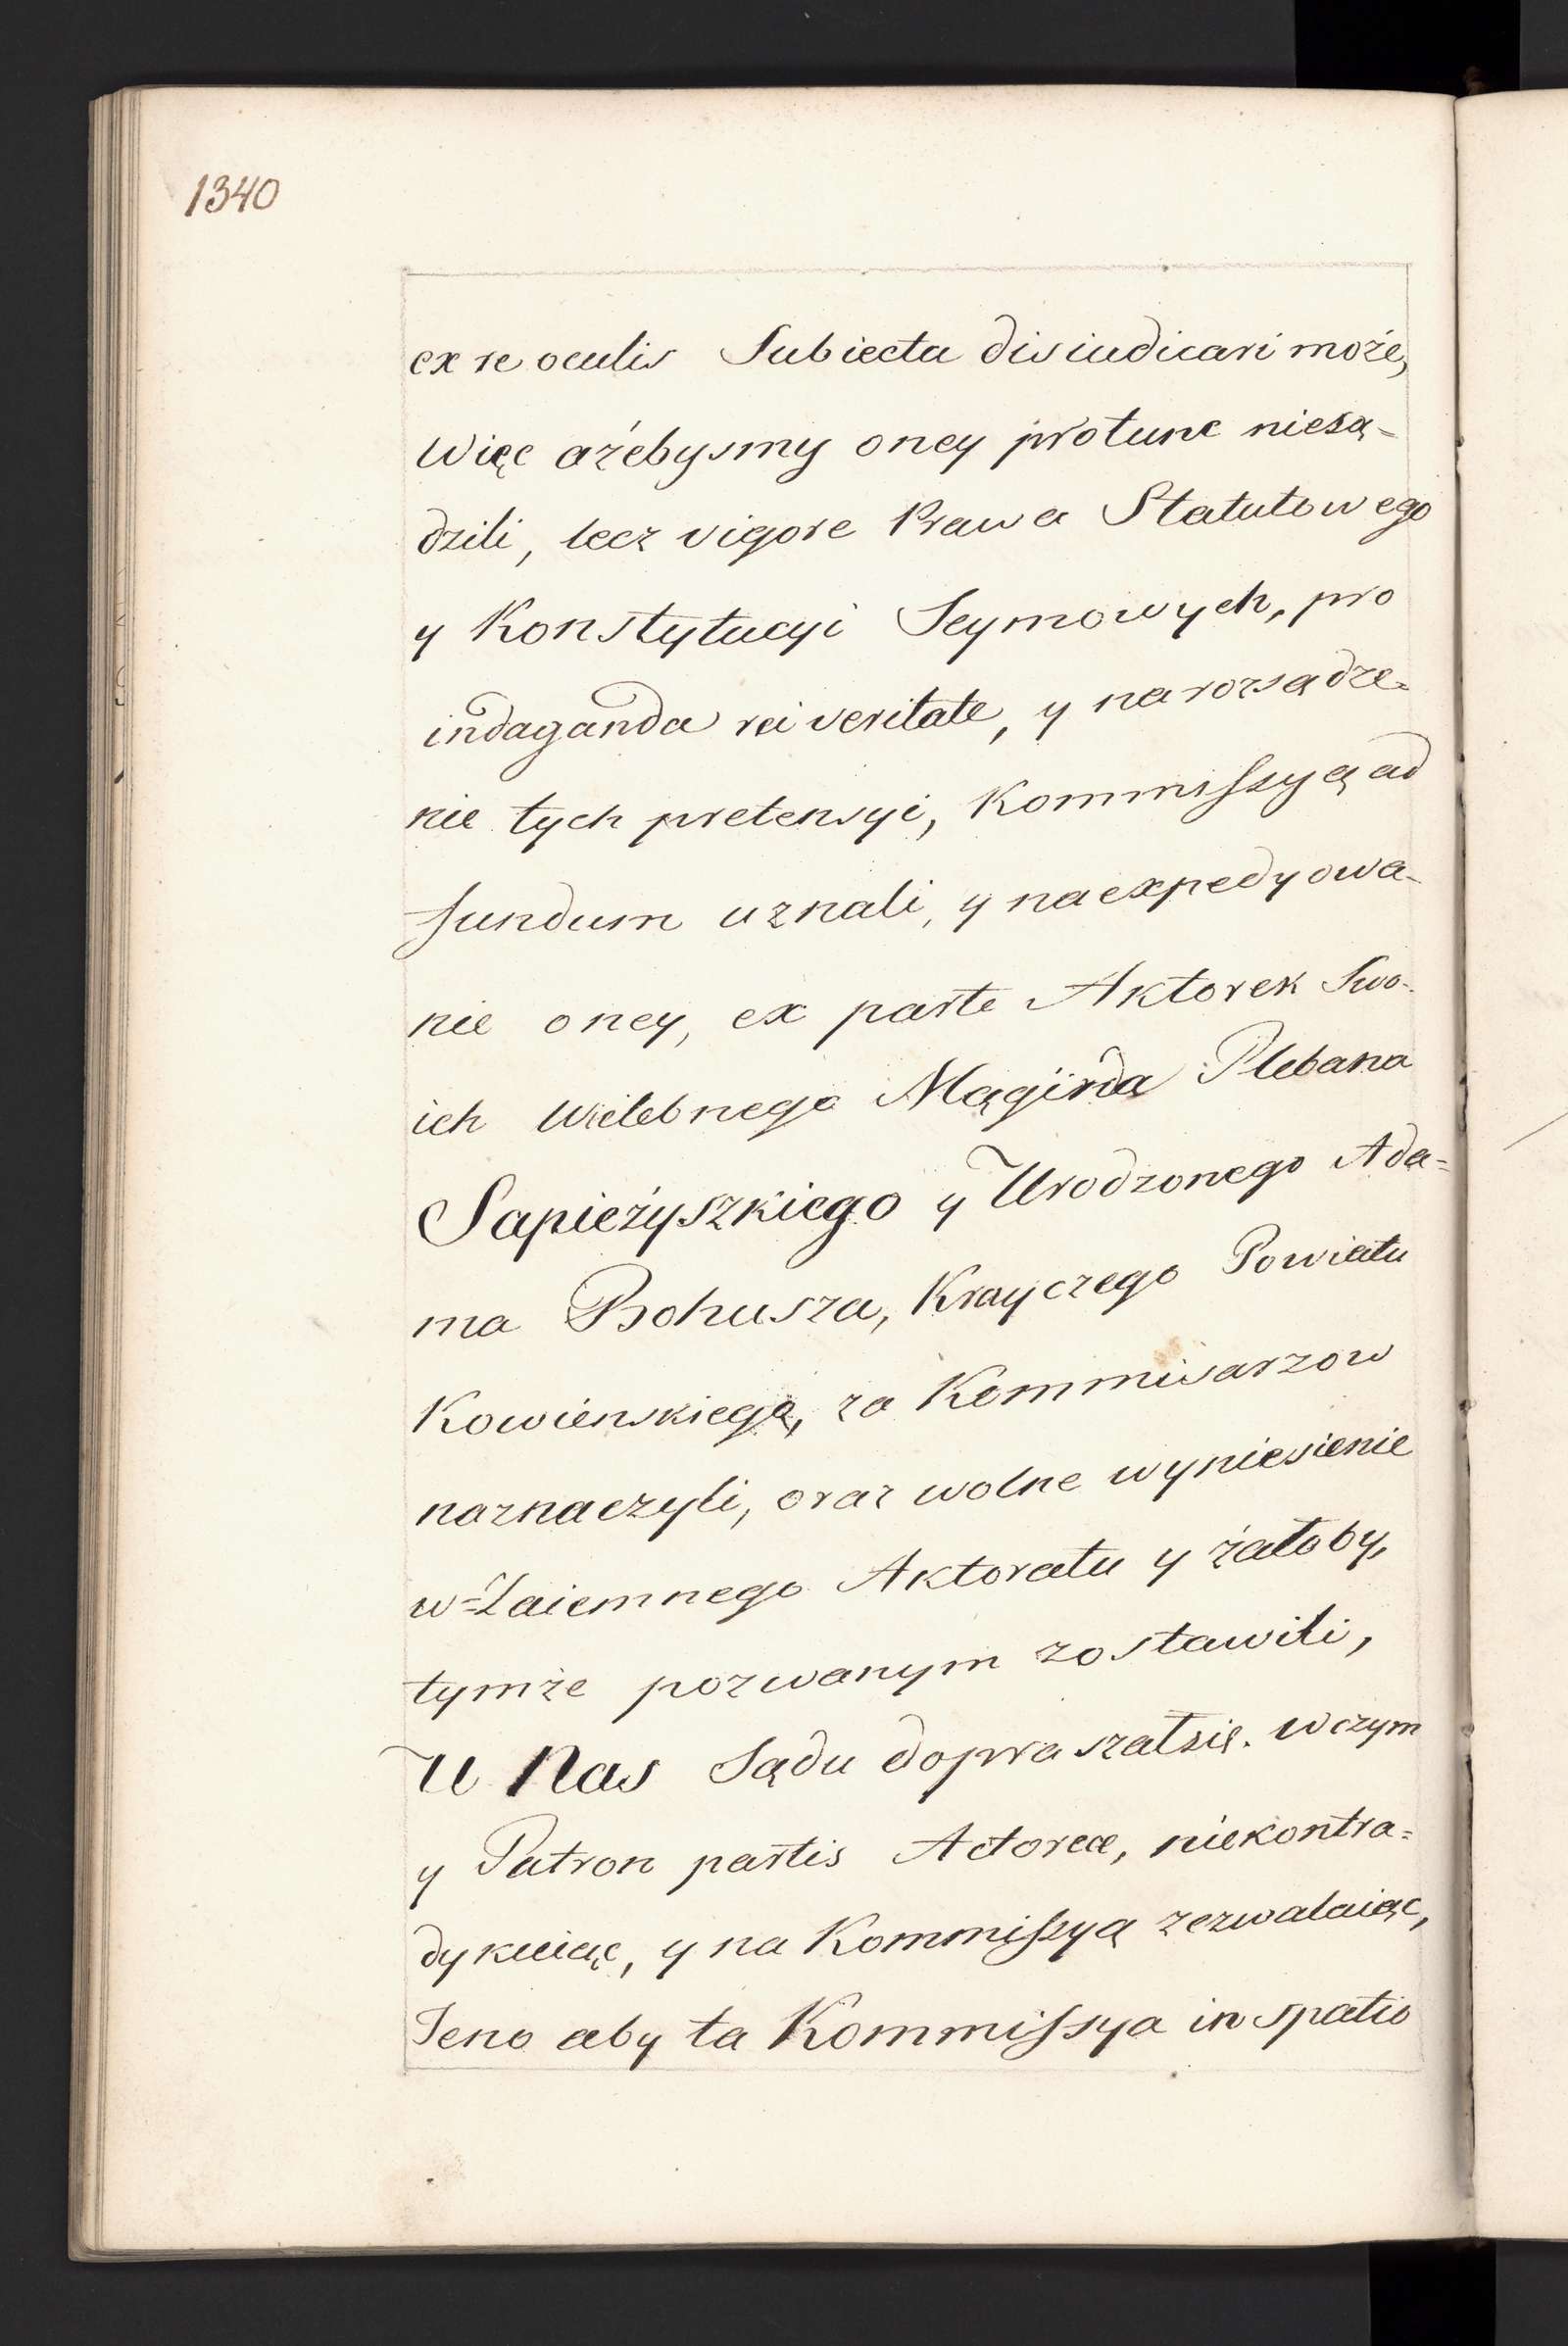 1340
ex re oculis Subiecta disiudicari może,
Więc ażebysmy oney protunc niesą-
dzili, lecz vigore Prawa Statutowego
y Konstytucyi Seymowych, pro
indaganda rei veritate, y na rozsądze-
nie tych pretensyi, Kommissyą ad
fundum uznali, y na expedyowa-
nie oney, ex parte Aktorek Swo-
ich Wielebnego Mągirda Plebana
Sapieżyszkiego y Urodzonego Ada=
ma Bohusza, Krayczego Powiatu
Kowienskiego, za Kommisarzow
naznaczyli, oraz wolne wyniesienie
w=Zaiemnego Aktoratu y żałoby,
tymże pozwanym zostawili,
U Nas Sądu dopraszał się. W czym
y Patron partis Actoreæ, niekontra=
dykuiąc, y na Kommissyą zezwalaiąc,
Jeno aby ta Kommissya in spatio